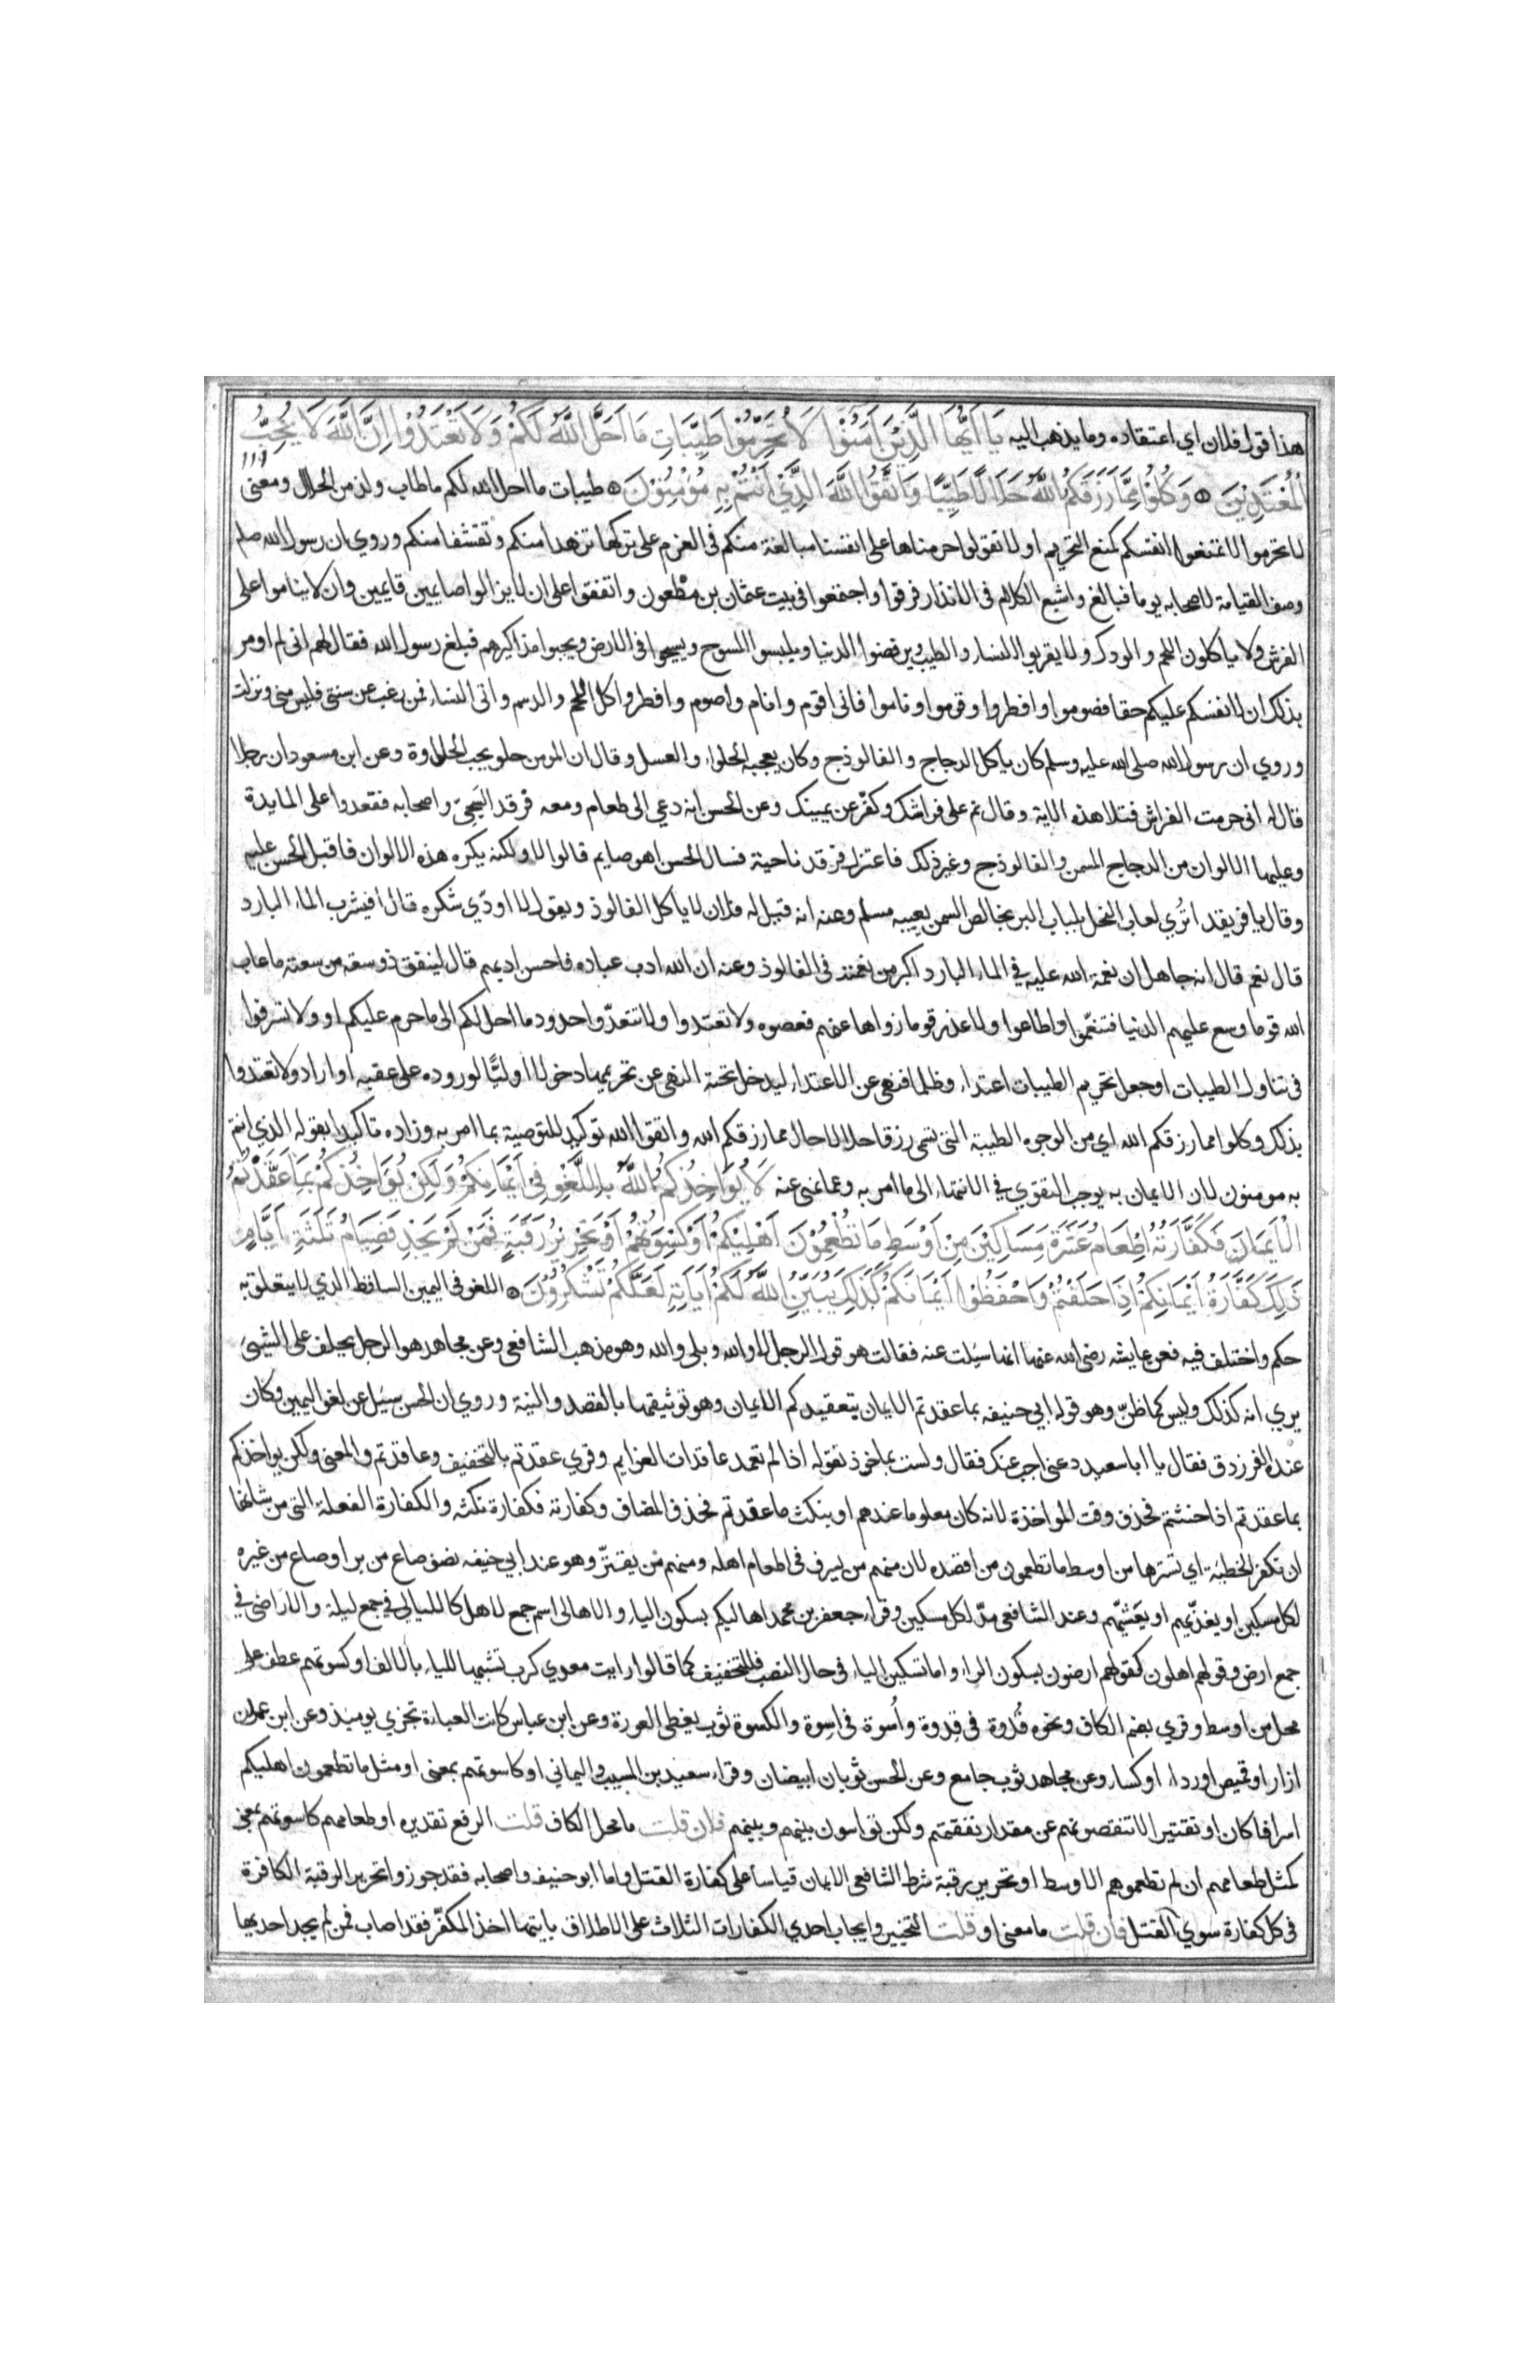 هذا قول فلان اي اعتقاده وما يذهب اليه يَا اَيُّهَا الَّذِيْنَ اٰمَنُوْا لَا تُحَرِّمُوْا طَيِّبَاتِ مَا اَحَلَّ اللّٰهُ لَكُمْ وَلَا تَعْتَدُوْا اِنَّ اللّٰهَ لَا يُحِبُّ
الْمُعْتَدِيْنَ ۝ وَكُلُوْا مِمَّا رَزَقَكُمُ اللّٰهُ حَلَالًا طَيِّبًا وَاتَّقُوا اللّٰهَ الَّذِيْ اَنْتُمْ بِهٖ مُؤْمِنُوْنَ ۝ طيبات ما احل الله لكم ما طاب ولذ من الحلال ومعنى
لا تحرموا لا تمنعوا انفسكم كمنع التحريم او لا تقولوا حرمناها على انفسنا مبالغة منكم في العزم على تركها تزهدا منكم وتقشفا منكم وروي ان رسول الله صلم
وصف القيامة لاصحابه يوما فبالغ واشبع الكلام في الانذار فرقوا واجتمعوا في بيت عثمان بن مظعون واتفقوا على ان لا يزالوا صايمين قايمين وان لا يناموا على
الفرش ولا ياكلون اللحم والودك ولا يقربوا النساء والطيب ويرفضوا الدنيا ويلبسوا المسوح ويسيحوا في الارض ويجبوا مذاكيرهم فبلغ رسول الله فقال لهم اني لم اومر
بذلك ان لانفسكم عليكم حقا فصوموا وافطروا وقوموا وناموا فاني اقوم وانام واصوم وافطر واكل اللحم والدسم واتي النساء فمن رغب عن سنتي فليس مني ونزلت
وروي ان رسول الله صلى الله عليه وسلم كان ياكل الدجاج والفالوذج وكان يعجبه الحلواء والعسل وقال ان المومن حلو يحب الحلاوة وعن ابن مسعود ان رجلا
قال له اني حرمت الفراش فتلا هذه الاية وقال نم على فراشك وكفّر عن يمينك وعن الحسن انه دعي الى طعام ومعه فرقد السبخيّ واصحابه فقعدوا على المايدة
وعليها الالوان من الدجاج المسمن والفالوذج وغير ذلك فاعتزل فرقد ناحية فسال الحسن اهو صايم قالوا لا ولكنه يكره هذه الالوان فاقبل الحسن عليه
وقال يا فريقد اترى لعاب النحل بلباب البر بخالص السمن يعيبه مسلم وعنه انه قيل له فلان لا ياكل الفالوذ ويقول لا اودّي شكره قال افيشرب الماء البارد
قال نعم قال انه جاهل ان نعمة الله عليه في الماء البارد اكبر من نعمته في الفالوذ وعنه ان الله ادب عباده فاحسن ادبهم قال لينفق ذو سعة من سعته ما عاب
الله قوما وسع عليهم الدنيا فتنعّموا واطاعوا ولا عذر قوما زواها عنهم فعصوه ولا تعتدوا ولا تتعدّوا حدود ما احل لكم الى ما حرم عليكم او ولا تسرفوا
في تناول الطيبات او جعل تحريم الطيبات اعتداء وظلما فنهى عن الاعتداء ليدخل تحته النهى عن تحريمها دخولا اوليًّا لوروده على عقبه او اراد ولا تعتدوا
بذلك وكلوا مما رزقكم الله اي من الوجوه الطيبة التي تسمى رزقا حلالا حال مما رزقكم الله واتقوا الله توكيد للتوصية بما امر به وزاده تاكيدا بقوله الذي انتم
به مومنون لان الايمان به يوجب التقوي في الانتهاء الى ما امر به وعما نهى عنه لَا يُؤَاخِذُكُمُ اللّٰهُ بِاللَّغْوِ فِيْ اَيْمَانِكُمْ وَلٰكِنْ يُؤَاخِذُكُمْ بِمَا عَقَّدْتُمُ
الْاَيْمَانَ فَكَفَّارَتُهُ اِطْعَامُ عَشَرَةِ مَسَاكِيْنَ مِنْ اَوْسَطِ مَا تُطْعِمُوْنَ اَهْلِيْكُمْ اَوْ كِسْوَتُهُمْ اَوْ تَحْرِيْرُ رَقَبَةٍ فَمَنْ لَمْ يَجِدْ فَصِيَامُ ثَلٰثَةِ اَيَّامٍ
ذٰلِكَ كَفَّارَةُ اَيْمَانِكُمْ اِذَا حَلَفْتُمْ وَاحْفَظُوْا اَيْمَانَكُمْ كَذٰلِكَ يُبَيِّنُ اللّٰهُ لَكُمْ اٰيَاتِهٖ لَعَلَّكُمْ تَشْكُرُوْنَ ۝ اللغو في اليمين الساقط الذي لا يتعلق به
حكم واختلف فيه فعن عايشه رضى الله عنها انها سئلت عنه فقالت هو قول الرجل لا والله وبلى والله وهو مذهب الشافعي وعن مجاهد هو الرجل يحلف على الشيئ
يري انه كذلك وليس كما ظنّ وهو قول ابي حنيفه بما عقدتم الايمان بتعقيدكم الايمان وهو توثيقها بالقصد والنية وروي ان الحسن سئل عن لغو اليمين وكان
عنده الفرزدق فقال يا ابا سعيد دعني اجب عنك فقال ولست بماخوذ تقوله اذا لم تعمد عاقدات العزايم وقري عقدتم بالتخفيف وعاقدتم والمعنى ولكن يواخذكم
بما عقدتم اذا حنثتم فحذف وقت المواخذة لانه كان معلوما عندهم او بنكث ما عقدتم فحذف المضاف وكفارته فكفارة نكثه والكفارة الفعلة التي من شانها
ان تكفر الخطيئة اي تسترها من اوسط ما تطعمون من اقصده لان منهم من يسرف في اطعام اهله ومنهم من يقترّ وهو عند ابي حنيفه نصف صاع من بر او صاع من غيره
لكل مسكين او يغدّيهم او يعَشيّهم وعند الشافعي مدّ لكل مسكين وقراء جعفر بن محمد اهاليكم بسكون الياء والاهالى اسم جمع لاهل كالليالي في جمع ليلة والاراضى في
جمع ارض وقولهم اهلون كقولهم ارضون بسكون الراء واما تسكين الياء في حال النصب فللتخفيف كما قالوا رايت معدي كرب تشبيها للياء بالالف او كسوتهم عطف على
محل من اوسط وقري بضم الكاف ونحوه قُدوة في قِدوة واُسوة في اِسوة والكسوة ثوب يغطى العورة وعن ابن عباس كانت العباءة تجزي يوميذ وعن ابن عمر
ازار او قميص او رداء او كساء وعن مجاهد ثوب جامع وعن الحسن ثوبان ابيضان وقراء سعيد بن المسيب واليماني او كاسوتهم بمعنى او مثل ما تطعمون اهليكم
اسرافا كان او تقتيرا لا تنقصونهم عن مقدار نفقتهم ولكن تواسون بينهم وبينهم فان قلت ما محل الكاف قلت الرفع تقديره او طعامهم كاسوتهم بمعنى
كمثل طعامهم ان لم تطعموهم الاوسط او تحرير رقبة شرط الشافعي الايمان قياسا على كفارة القتل واما ابو حنيفه واصحابه فقد جوزوا تحرير الرقبة الكافرة
في كل كفارة سوي القتل فان قلت ما معنى او قلت التخيير وايجاب احدي الكفارات الثلاث على الاطلاق بايتها اخذ المكفّر فقد اصاب فمن لم يجد احديها